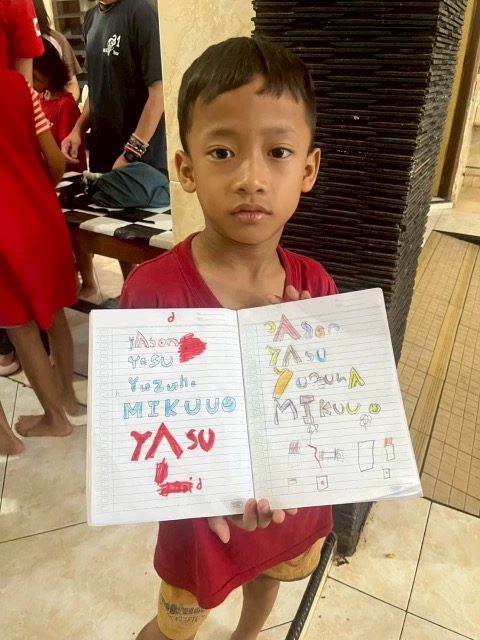 d
YASON
YASU
Yuzuha
MIKUUU
YASU
L
YASON
YASU
YUZUHA
MIKUU